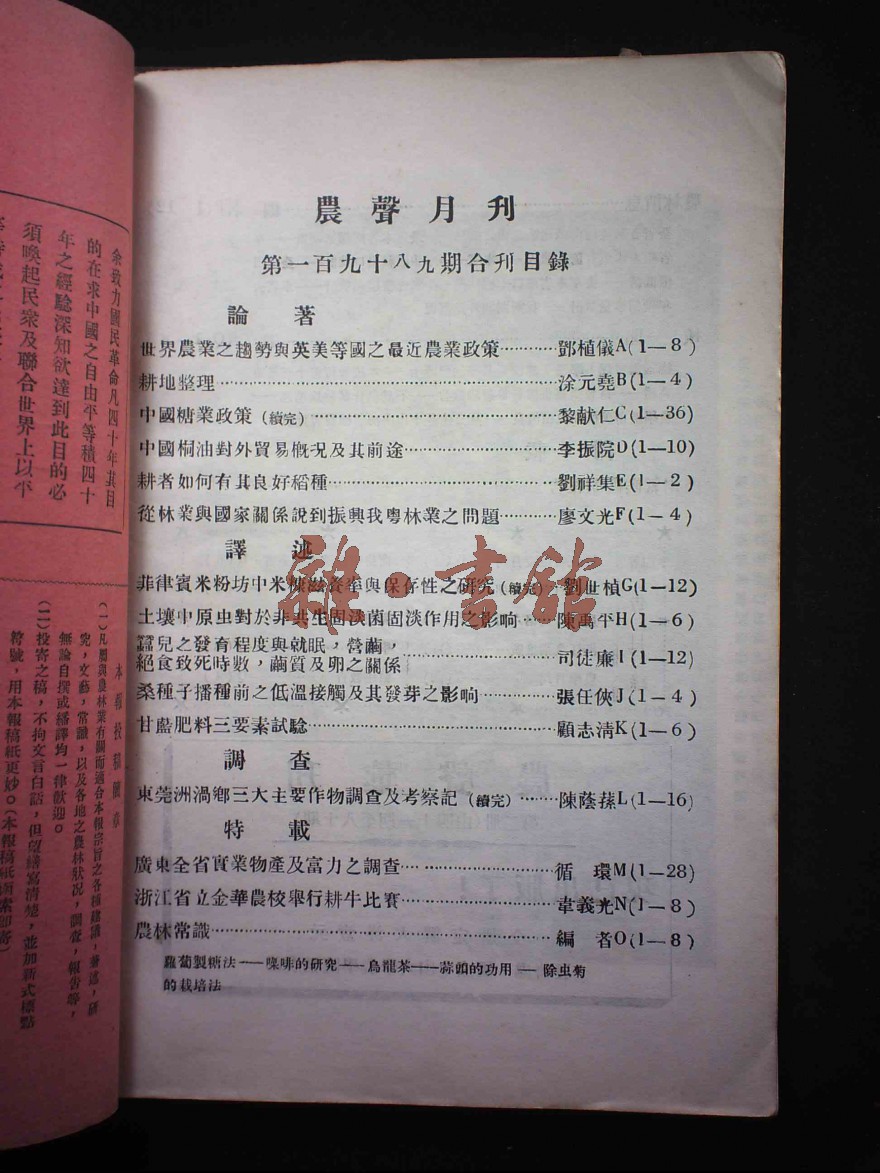 農聲月刊
第一百九十八九期合刊目錄
論著
世界農業之趨勢與英美等國之最近農業政策…………鄧植儀A(1—8)
耕地整理…………涂元堯B(1—4)
中國糖業政策(續完)…………黎献仁C(1—36)
中國桐油對外貿易概况及其前途…………李振院D(1—10)
耕者如何有其良好稻種…………劉祥集E(1—2)
從林業與國家關係說到振興我粵林業之問題…………廖文光F(1—4)
譯述
菲律賓米粉坊中米糠滋養率與保存性之研究(續完)…劉世楨G(1—12)
土壤中原虫對於非共生固淡菌固淡作用之影响……陳禹平H(1—6)
蠶兒之發育程度與就眠,營繭,
絕食致死時數,繭質及卵之關係…………司徒廉I(1—12)
桑種子播種前之低溫接觸及其發芽之影响…………張任俠J(1—4)
甘藍肥料三要素試驗…………顧志清K(1—6)
調查
東莞洲渦鄉三大主要作物調查及考察記(續完)…陳蔭蓀L(1—16)
特載
廣東全省實業物產及富力之調查…………循環M(1—28)
浙江省立金華農校舉行耕牛比賽…………韋義光N(1—8)
農林常識…………編者O(1—8)
蘿蔔製糖法——咖啡的研究——烏龍茶——蒜頭的功用——除虫菊
的栽培法
余致力國民革命凡四十年其目
的在求中國之自由平等積四十
年之經驗深知欲達到此目的必
須喚起民眾及聯合世界上以平
本報投稿簡章
(一)凡關與農林業有關而適合本報宗旨之各種建議,著述,研
究,文藝,常識,以及各地之農林狀况,調查,報告等,
無論自撰或繙譯均一律歡迎。
(二)投寄之稿,不拘文言白話,但望繕寫清楚,並加新式標點
符號,用本報稿紙更妙。(本報稿紙函索即寄)
雜·書館